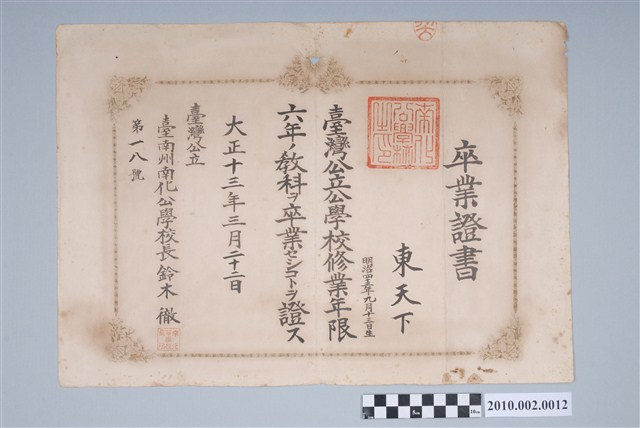 卒業證書
東天下
明治四五年九月十三日生
臺灣公立公學校修業年限
六年ノ教科ヲ卒業セシコトヲ證ス
大正十三年三月二十二日
臺灣公立
臺南州南化公學校長 鈴木徹
第一八號
5cm
10cm
2010.002.0012